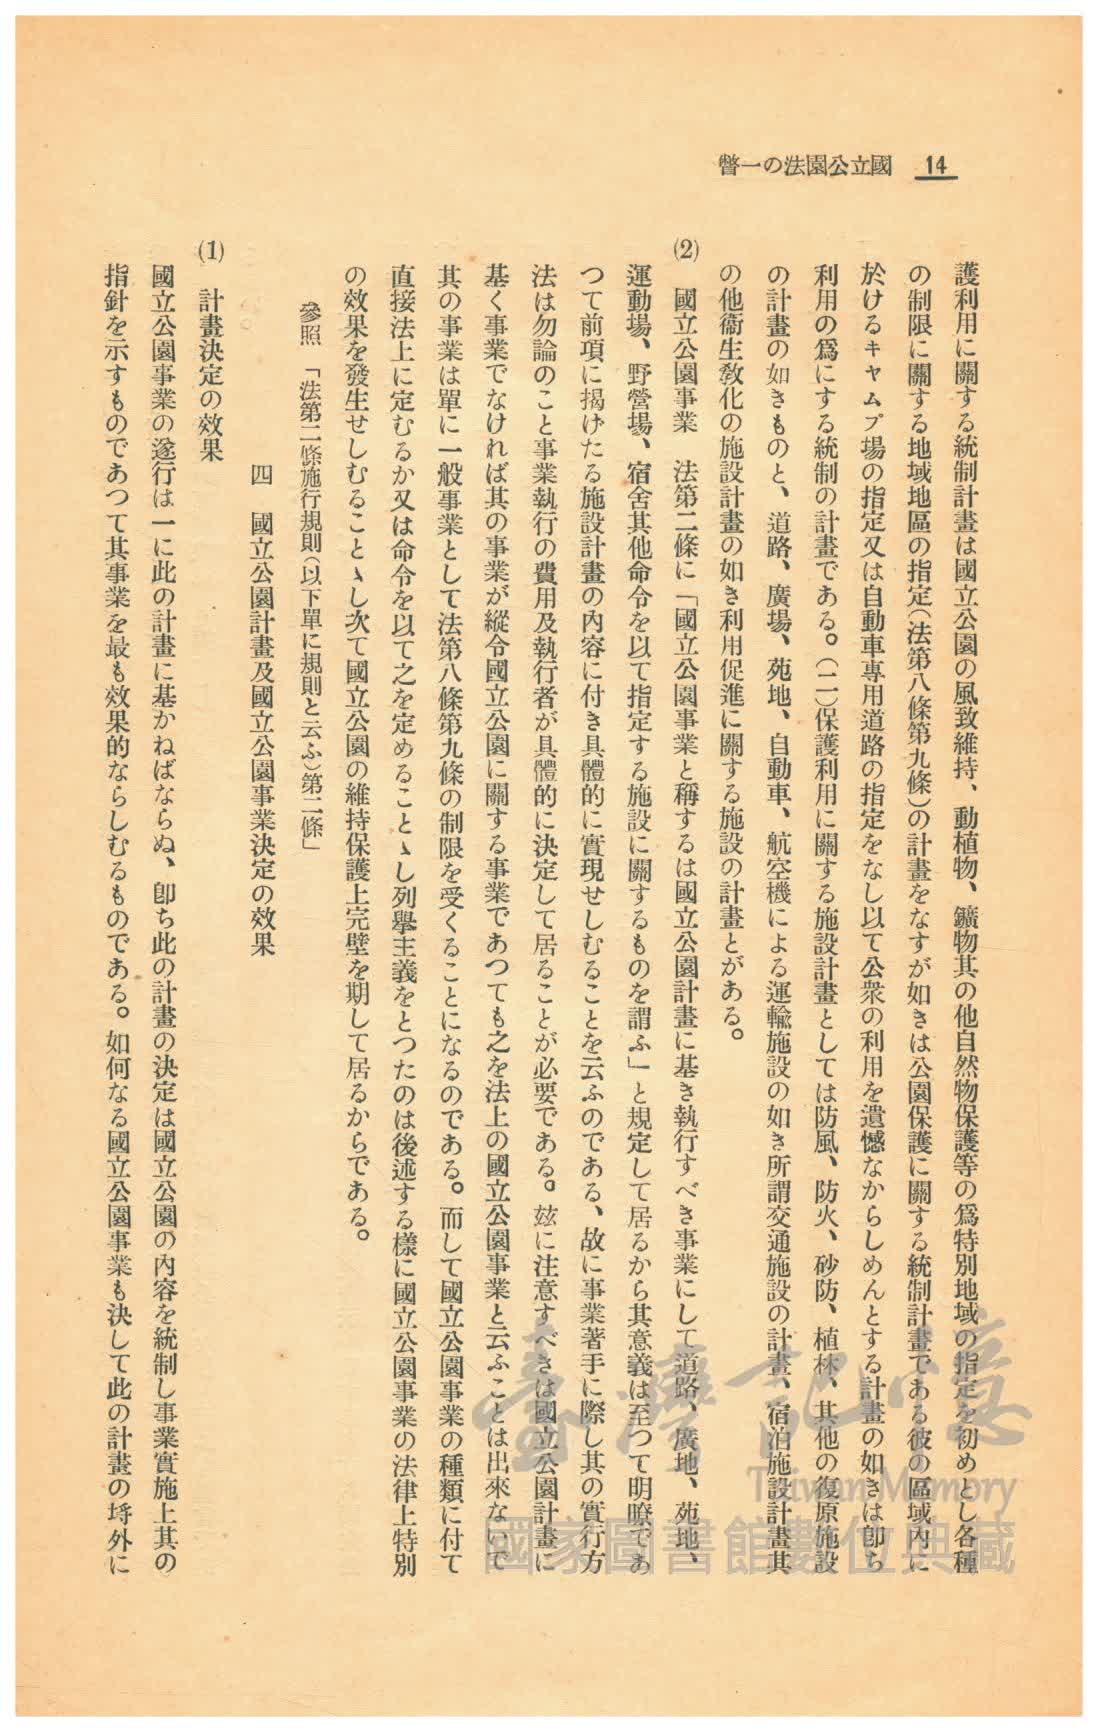 14　國立公園法の一瞥
護利用に關する統制計畫は國立公園の風致維持、動植物、鑛物其の他自然物保護等の爲特別地域の指定を初めとし各種
の制限に關する地域地區の指定（法第八條第九條）の計畫をなすが如きは公園保護に關する統制計畫である彼の區域內に
於けるキャムプ場の指定又は自動車專用道路の指定をなし以て公衆の利用を遺憾なからしめんとする計畫の如きは卽ち
利用の爲にする統制の計畫である。（二）保護利用に關する施設計畫としては防風、防火、砂防、植林、其他の復原施設
の計畫の如きものと、道路、廣場、苑地、自動車、航空機による運輸施設の如き所謂交通施設の計畫、宿泊施設計畫其
の他衞生敎化の施設計畫の如き利用促進に關する施設の計畫とがある。
(2)　國立公園事業　法第二條に「國立公園事業と稱するは國立公園計畫に基き執行すべき事業にして道路、廣地、苑地、
運動場、野營場、宿舍其他命令を以て指定する施設に關するものを謂ふ」と規定して居るから其意義は至つて明瞭であ
つて前項に揭げたる施設計畫の內容に付き具體的に實現せしむることを云ふのである、故に事業著手に際し其の實行方
法は勿論のこと事業執行の費用及執行者が具體的に決定して居ることが必要である。玆に注意すべきは國立公園計畫に
基く事業でなければ其の事業が縱令國立公園に關する事業であつても之を法上の國立公園事業と云ふことは出來ないで
其の事業は單に一般事業として法第八條第九條の制限を受くることになるのである。而して國立公園事業の種類に付て
直接法上に定むるか又は命令を以て之を定めることゝし列擧主義をとつたのは後述する樣に國立公園事業の法律上特別
の效果を發生せしむることゝし次て國立公園の維持保護上完璧を期して居るからである。
參照　「法第二條施行規則（以下單に規則と云ふ）第二條」
四　國立公園計畫及國立公園事業決定の效果
(1)　計畫決定の效果
國立公園事業の遂行は一に此の計畫に基かねばならぬ、卽ち此の計畫の決定は國立公園の內容を統制し事業實施上其の
指針を示すものであつて其事業を最も效果的ならしむるものである。如何なる國立公園事業も決して此の計畫の埓外に
臺灣記憶
Taiwan Memory
國家圖書館數位典藏